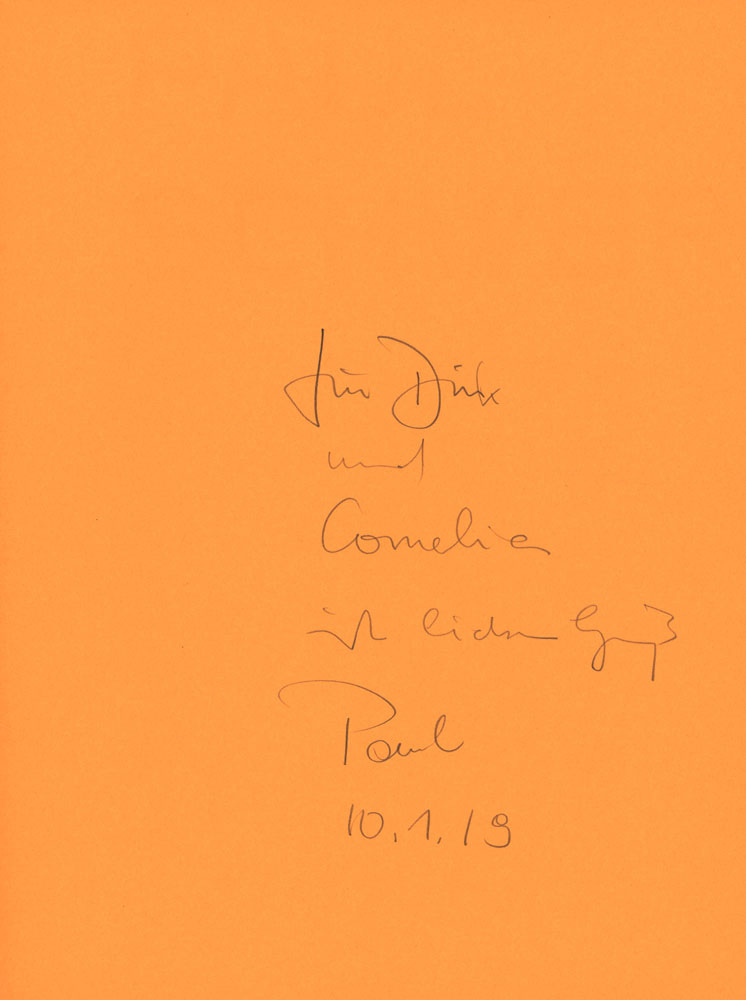 für Dirk
und
Cornelia
lieben Gruß
Paul
10.1.19